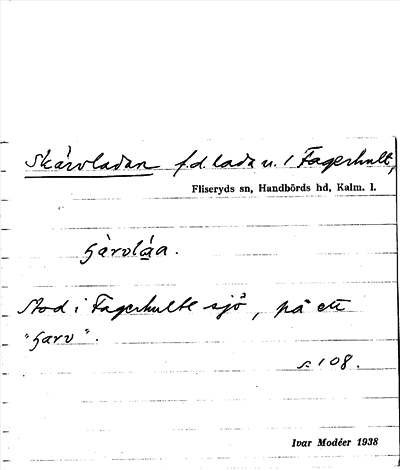 Skärvladan f.d. lada u. 1 Fagerhult,
Fliseryds sn, Handbörds hd, Kalm. l.
stod i Fagerhults sjö, på ett
s 108.
Ivar Modéer 1938